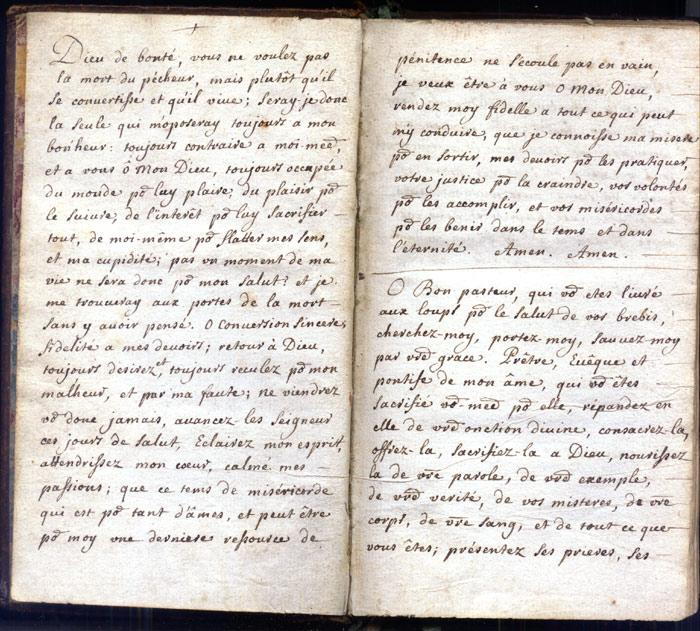 +
Dieu de bonté, vous ne voulez pas
la mort du pécheur, mais plutôt qu'il
se convertisse et qu'il vive; seray-je donc
la seule qui m'oposeray toujours a mon
bonheur: toujours contraire a moi-meê,
et a vous Ô Mon Dieu, toujours occupée
du monde pô luy plaire, du plaisir pô
le suivre, de l'interêt pô luy sacrifier
tout, de moi-même pô flatter mes sens,
et ma cupidité; pas un moment de ma
vie ne sera donc pô mon salut? et je
me trouveray aux portes de la mort
sans y avoir pensé. O Conversion sincere,
fidelité a mes devoirs; retour à Dieu,
toujours desirez et toujours reculez pô mon
malheur, et par ma faute; ne viendrez
vô donc jamais, avancez-les Seigneur
ces jours de salut, Eclairez mon esprit,
attendrissez mon cœur, calmé mes
passions; que ce tems de miséricorde
qui est pô tant d'âmes, et peut être
pô moy une derniere ressource de
pénitence ne s'écoule pas en vain,
je veux être à vous O Mon Dieu,
rendez moy fidelle a tout ce qui peut
m'y conduire, que je connoisse ma misere
pô en sortir, mes devoirs pô les pratiquer,
votre justice pô la craindre, vos volontés
pô les accomplir, et vos miséricordes
pô les benir dans le tems et dans
l'éternité. Amen. Amen.
O Bon pasteur, qui vô etes livré
aux loups pô le salut de vos brebis,
cherchez-moy, portez-moy, sauvez-moy
par vrê grace. Prêtre, Evêque et
pontife de mon âme, qui vô êtes
sacrifié vô-meê pô elle, répandez en
elle de vrê onction divine, consacrez-la,
offrez-la, sacrifiez-la a Dieu, nourissez
la de vre parole, de vrê exemple,
de vrê verité, de vos misteres, de vre
corps, de vre sang, et de tout ce que
vous êtes; présentez ses prieres, ses